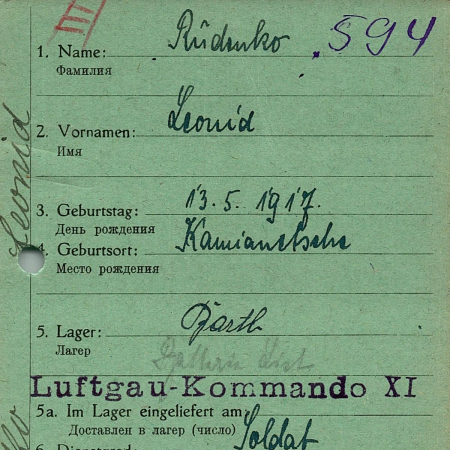 III
594
1. Name: Rüdenko
Фамилия
2. Vornamen: Leonid
Имя
3. Geburtstag: 13. 5. 1917.
День рождения
4. Geburtsort: Kamianetsche
Место рождения
5. Lager: Barth
Лагер
Luftgau-Kommando XI
5a. Im Lager eingeliefert am
Доставлен в лагер (число)
Soldat
Leonid